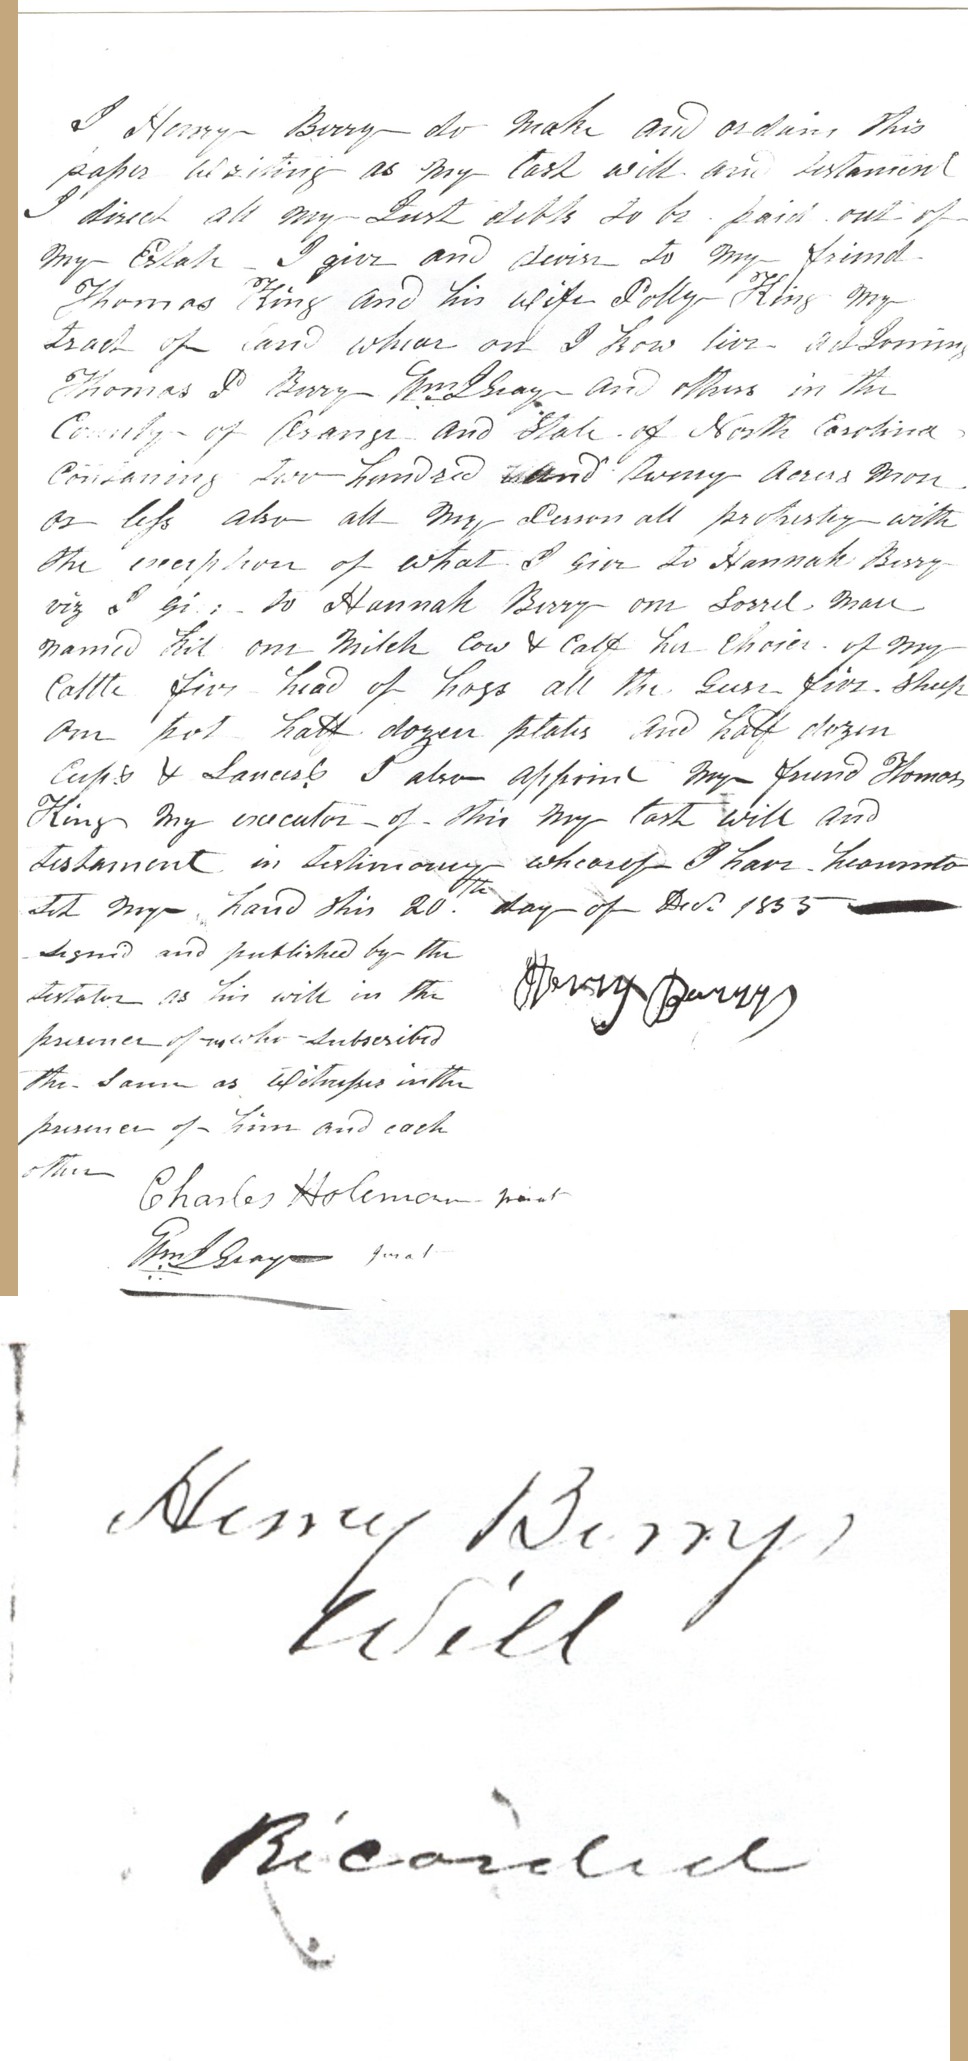 I Henry Berry do make and ordain this
paper writing as my last will and testament
I direct all my Just debts to be paid out of
my Estate I give and devise to my friend
Thomas King and his wife Polly King my
tract of land whear on I now live adJoining
Thomas P Berry Wm L Gray and others in the
County of Orange and State of North Carolina
Containing two hundred and twenty Acres more
or less also all my Personall property with
the exception of what I give to Hannah Berry
viz I give to Hannah Berry one Sorrel mare
named Kit one Milch Cow & Calf her Choice of my
Cattle five head of hogs all the Geese five Sheep
one pot half dozen plates and half dozen
Cups & Saucers I also appoint my friend Thomas
King my executor of this my last will and
testament in testimoney whearof I have heaunto
set my hand this 20th day of Decr. 1855
signed and published by the
testator as his will in the
presence of us who subscribed
the same as witnesses in the
presence of him and each
other
Henry Berry
Charles Holeman Jurat
Wm L Gray Jurat
Henry Berrys
Will
Recorded